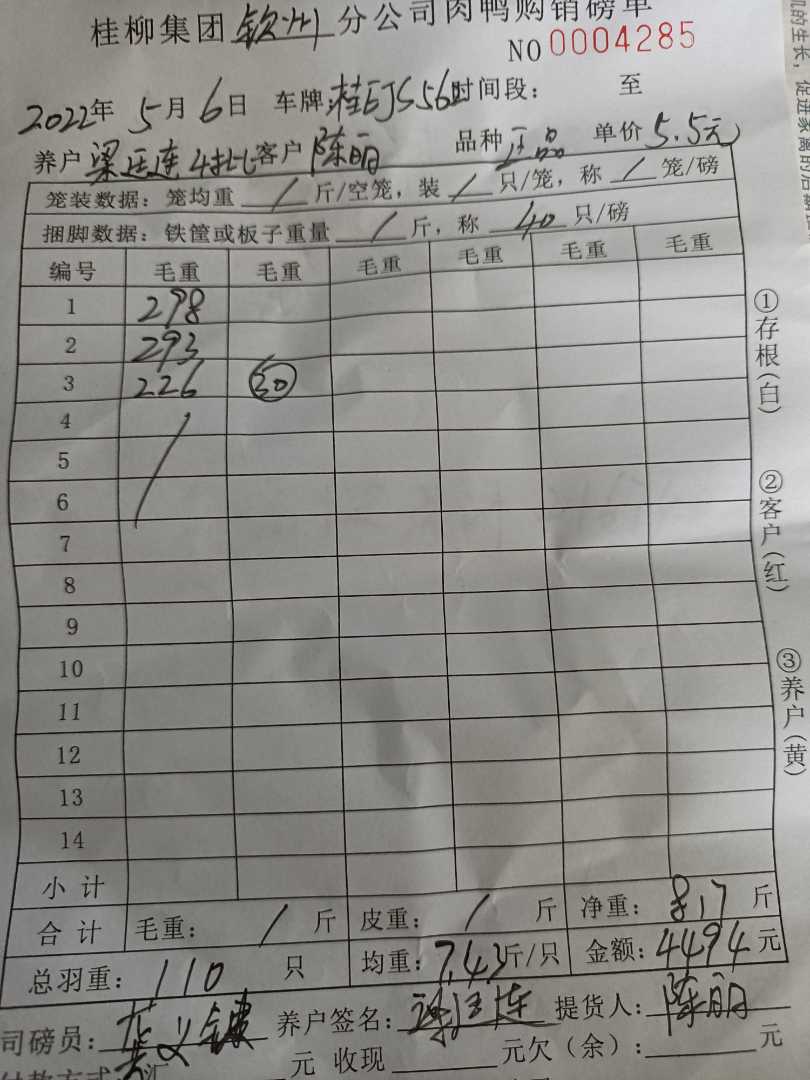 桂柳集团 钦州 分公司肉鸭购销磅单
NO 0004285
2022年 5月 6日 车牌:桂EJS562 时间段: 至
养户 梁廷连 4批 客户 陈丽 品种 正品 单价 5.5元
笼装数据: 笼均重 / 斤/空笼, 装 / 只/笼, 称 / 笼/磅
捆脚数据: 铁筐或板子重量 / 斤, 称 40 只/磅
编号 毛重 毛重 毛重 毛重 毛重 毛重
1 298
2 293
3 226 30
4 /
5
6
7
8
9
10
11
12
13
14
小计
合计 毛重: / 斤 皮重: / 斤 净重: 817 斤
总羽重: 110 只 均重: 7.43斤/只 金额: 4494元
司磅员: 义 养户签名: 连 提货人: 陈丽
付款方式: 汇 元 收现 元欠(余): 元
①存根(白)
②客户(红)
③养户(黄)
的生长, 促进家禽的